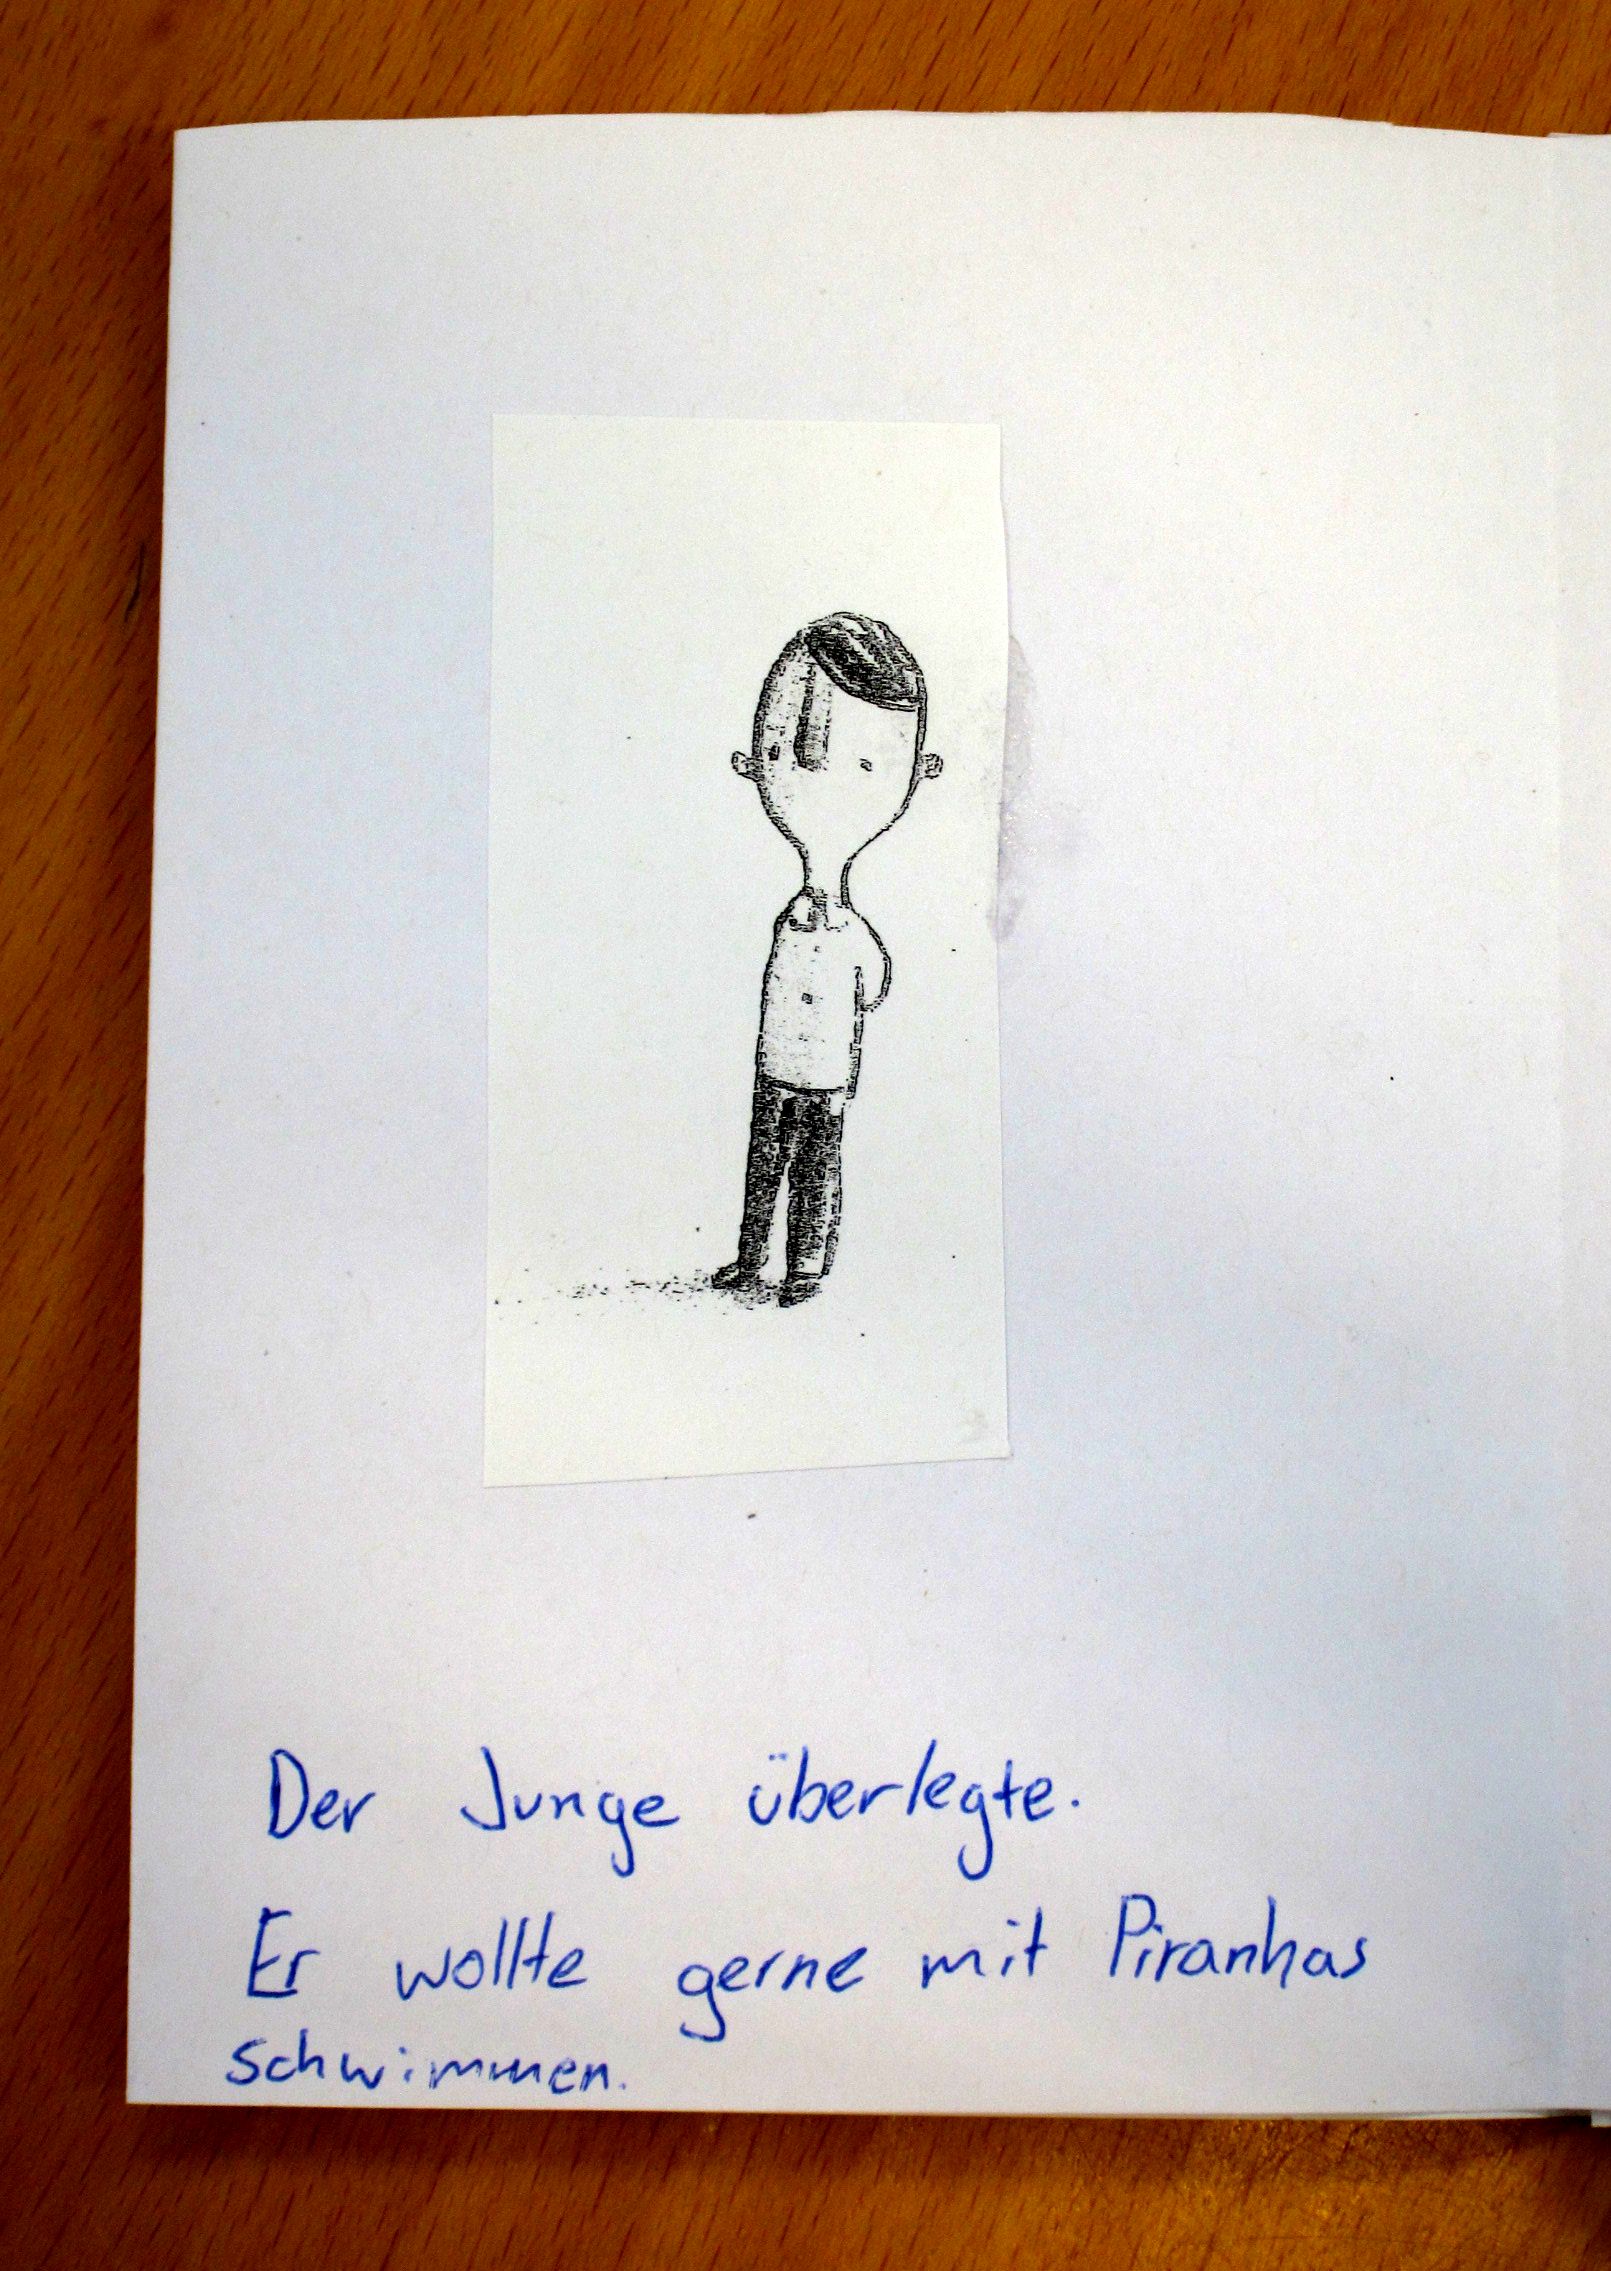 Der Junge überlegte.
Er wollte gerne mit Piranhas
schwimmen.